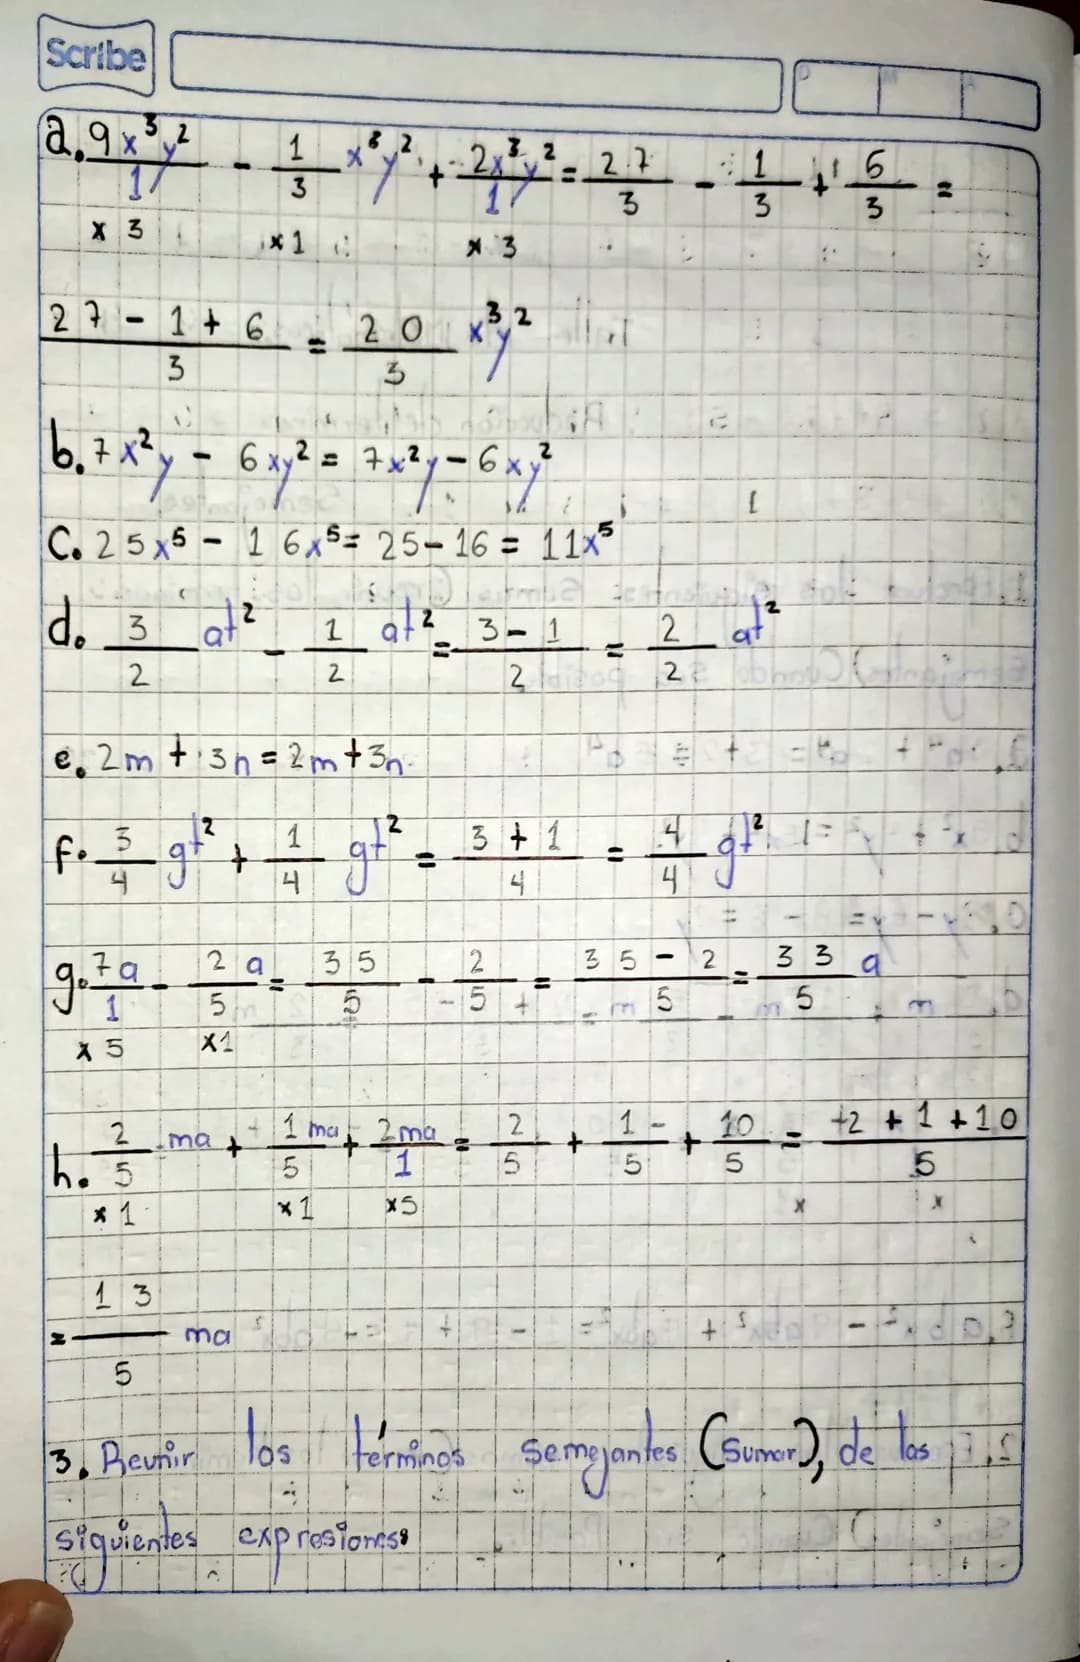 Scribe
D M A
a. 9x³y²/1 - 1/3 x³y² + 2x³y²/1 = 27/3 - 1/3 + 6/3 =
x 3 x 1 x 3
27 - 1 + 6/3 = 20/3 x³y²
b. 7x²y - 6xy² = 7x²y - 6xy²
C. 25x⁵ - 16x⁵ = 25 - 16 = 11x⁵
d. 3/2 at² - 1/2 at² = 3 - 1/2 = 2/2 at²
e. 2m + 3n = 2m + 3n
f. 3/4 gt² + 1/4 gt² = 3 + 1/4 = 4/4 gt²
g. 7a/1 - 2a/5 = 35/5 - 2/5 = 35 - 2/5 = 33/5 a
x 5 x1
h. 2/5 ma + 1 ma/5 + 2ma/1 = 2/5 + 1/5 + 10/5 = +2 + 1 + 10/5
x 1 x 1 x5
= 13/5 ma
3. Reunir los términos semejantes (Sumar), de las
siguientes expresiones: